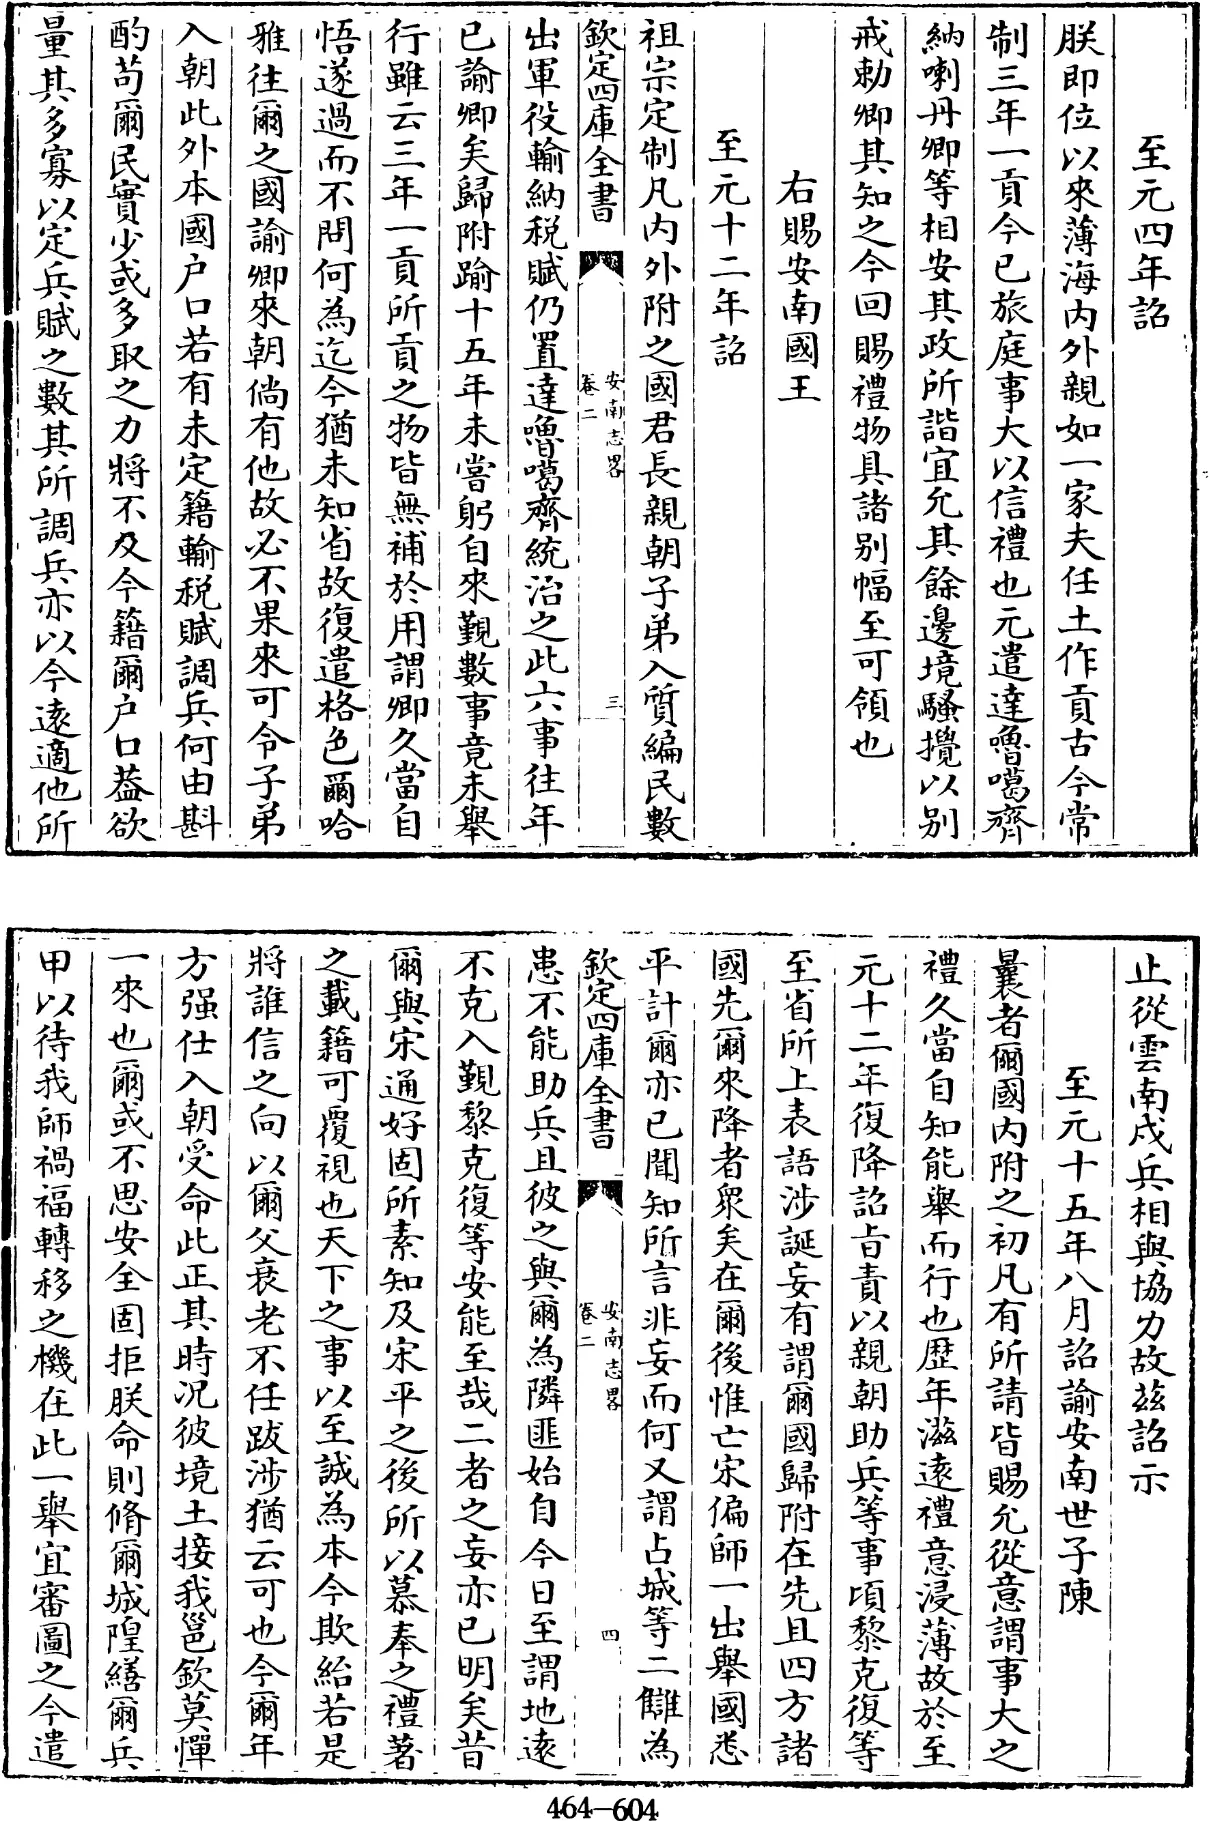 至元四年詔
朕即位以來薄海内外親如一家夫任土作貢古今常
制三年一貢今已旅庭事大以信禮也元遣達嚕噶齊
納喇丹卿等相安其政所諧宜允其餘邊境騷攪以别
戒勅卿其知之今回賜禮物具諸别幅至可領也
右賜安南國王
至元十二年詔
祖宗定制凡内外附之國君長親朝子弟入質編民數
欽定四庫全書
安南志畧
卷二
三
出軍役輸納税賦仍置達嚕噶齊統治之此六事往年
已諭卿矣歸附踰十五年未嘗躬自來覲數事竟未舉
行雖云三年一貢所貢之物皆無補於用謂卿久當自
悟遂過而不問何為迄今猶未知省故復遣格色爾哈
雅往爾之國諭卿來朝倘有他故必不果來可令子弟
入朝此外本國户口若有未定籍輸税賦調兵何由斟
酌苟爾民實少或多取之力將不及今籍爾户口葢欲
量其多寡以定兵賦之數其所調兵亦以今逺適他所
止從雲南戍兵相與協力故兹詔示
至元十五年八月詔諭安南世子陳
曩者爾國内附之初凡有所請皆賜允從意謂事大之
禮久當自知能舉而行也歴年滋逺禮意浸薄故於至
元十二年復降詔旨責以親朝助兵等事頃黎克復等
至省所上表語涉誕妄有謂爾國歸附在先且四方諸
國先爾來降者衆矣在爾後惟亡宋偏師一出舉國悉
平計爾亦已聞知所言非妄而何又謂占城等二讎為
欽定四庫全書
安南志畧
卷二
四
患不能助兵且彼之與爾為隣匪始自今日至謂地逺
不克入覲黎克復等安能至哉二者之妄亦已明矣昔
爾與宋通好固所素知及宋平之後所以慕奉之禮著
之載籍可覆視也天下之事以至誠為本今欺紿若是
將誰信之向以爾父衰老不任跋涉猶云可也今爾年
方强仕入朝受命此正其時况彼境土接我邕欽莫憚
一來也爾或不思安全固拒朕命則脩爾城隍繕爾兵
甲以待我師禍福轉移之機在此一舉宜審圖之今遣
464-604